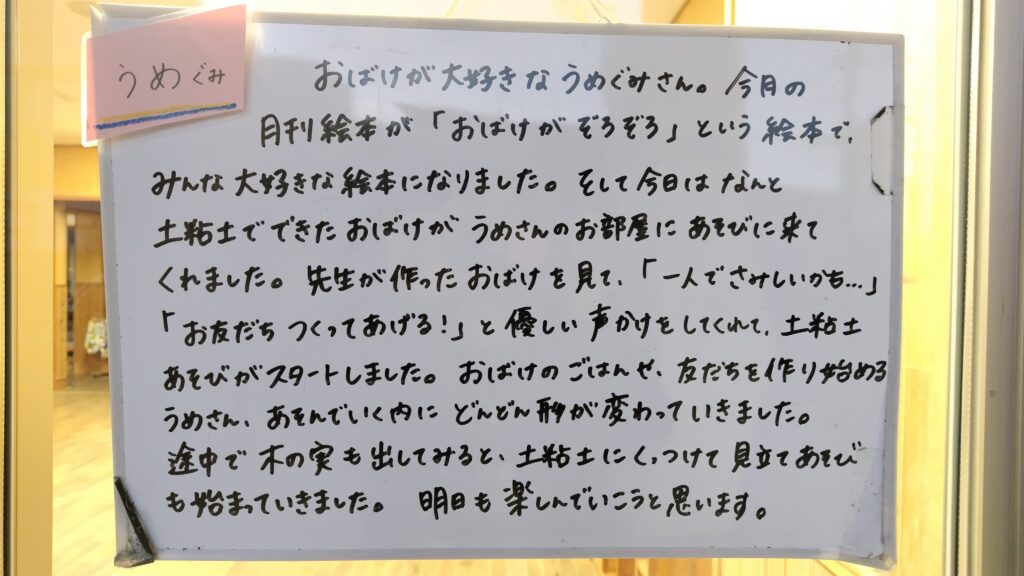 うめぐみ
おばけが大好きなうめぐみさん。今月の
月刊絵本が「おばけがぞろぞろ」という絵本で、
みんな大好きな絵本になりました。そして今日はなんと
土粘土でできたおばけがうめさんのお部屋にあそびに来て
くれました。先生が作ったおばけを見て、「一人でさみしいかも…」
「お友だちつくってあげる!」と優しい声かけをしてくれて、土粘土
あそびがスタートしました。おばけのごはんや、友だちを作り始める
うめさん、あそんでいく内にどんどん形が変わっていきました。
途中で木の実も出してみると、土粘土にくっつけて見立てあそび
も始まっていきました。明日も楽しんでいこうと思います。